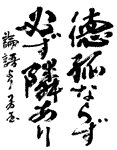 徳孤ならず
必ず隣あり
論語より